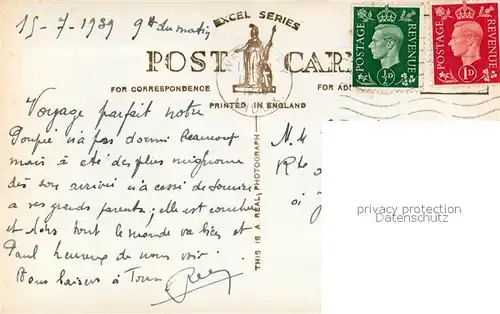 15-7-1939 9h du matin
EXCEL SERIES
POST CARD
FOR CORRESPONDENCE
FOR AD
PRINTED IN ENGLAND
POSTAGE REVENUE
½D
POSTAGE REVENUE
1D
THIS IS A REAL PHOTOGRAPH
Voyage parfait notre
Poupée n'a pas dormi beaucoup
mais à été des plus mignonne
dès son arrivée n'a cessé de
a ses grands parents; elle est couchée
et dors tout le monde va bien et
Paul heureux de nous voir
Bons baisers à Tous
M. M
privacy protection
Datenschutz